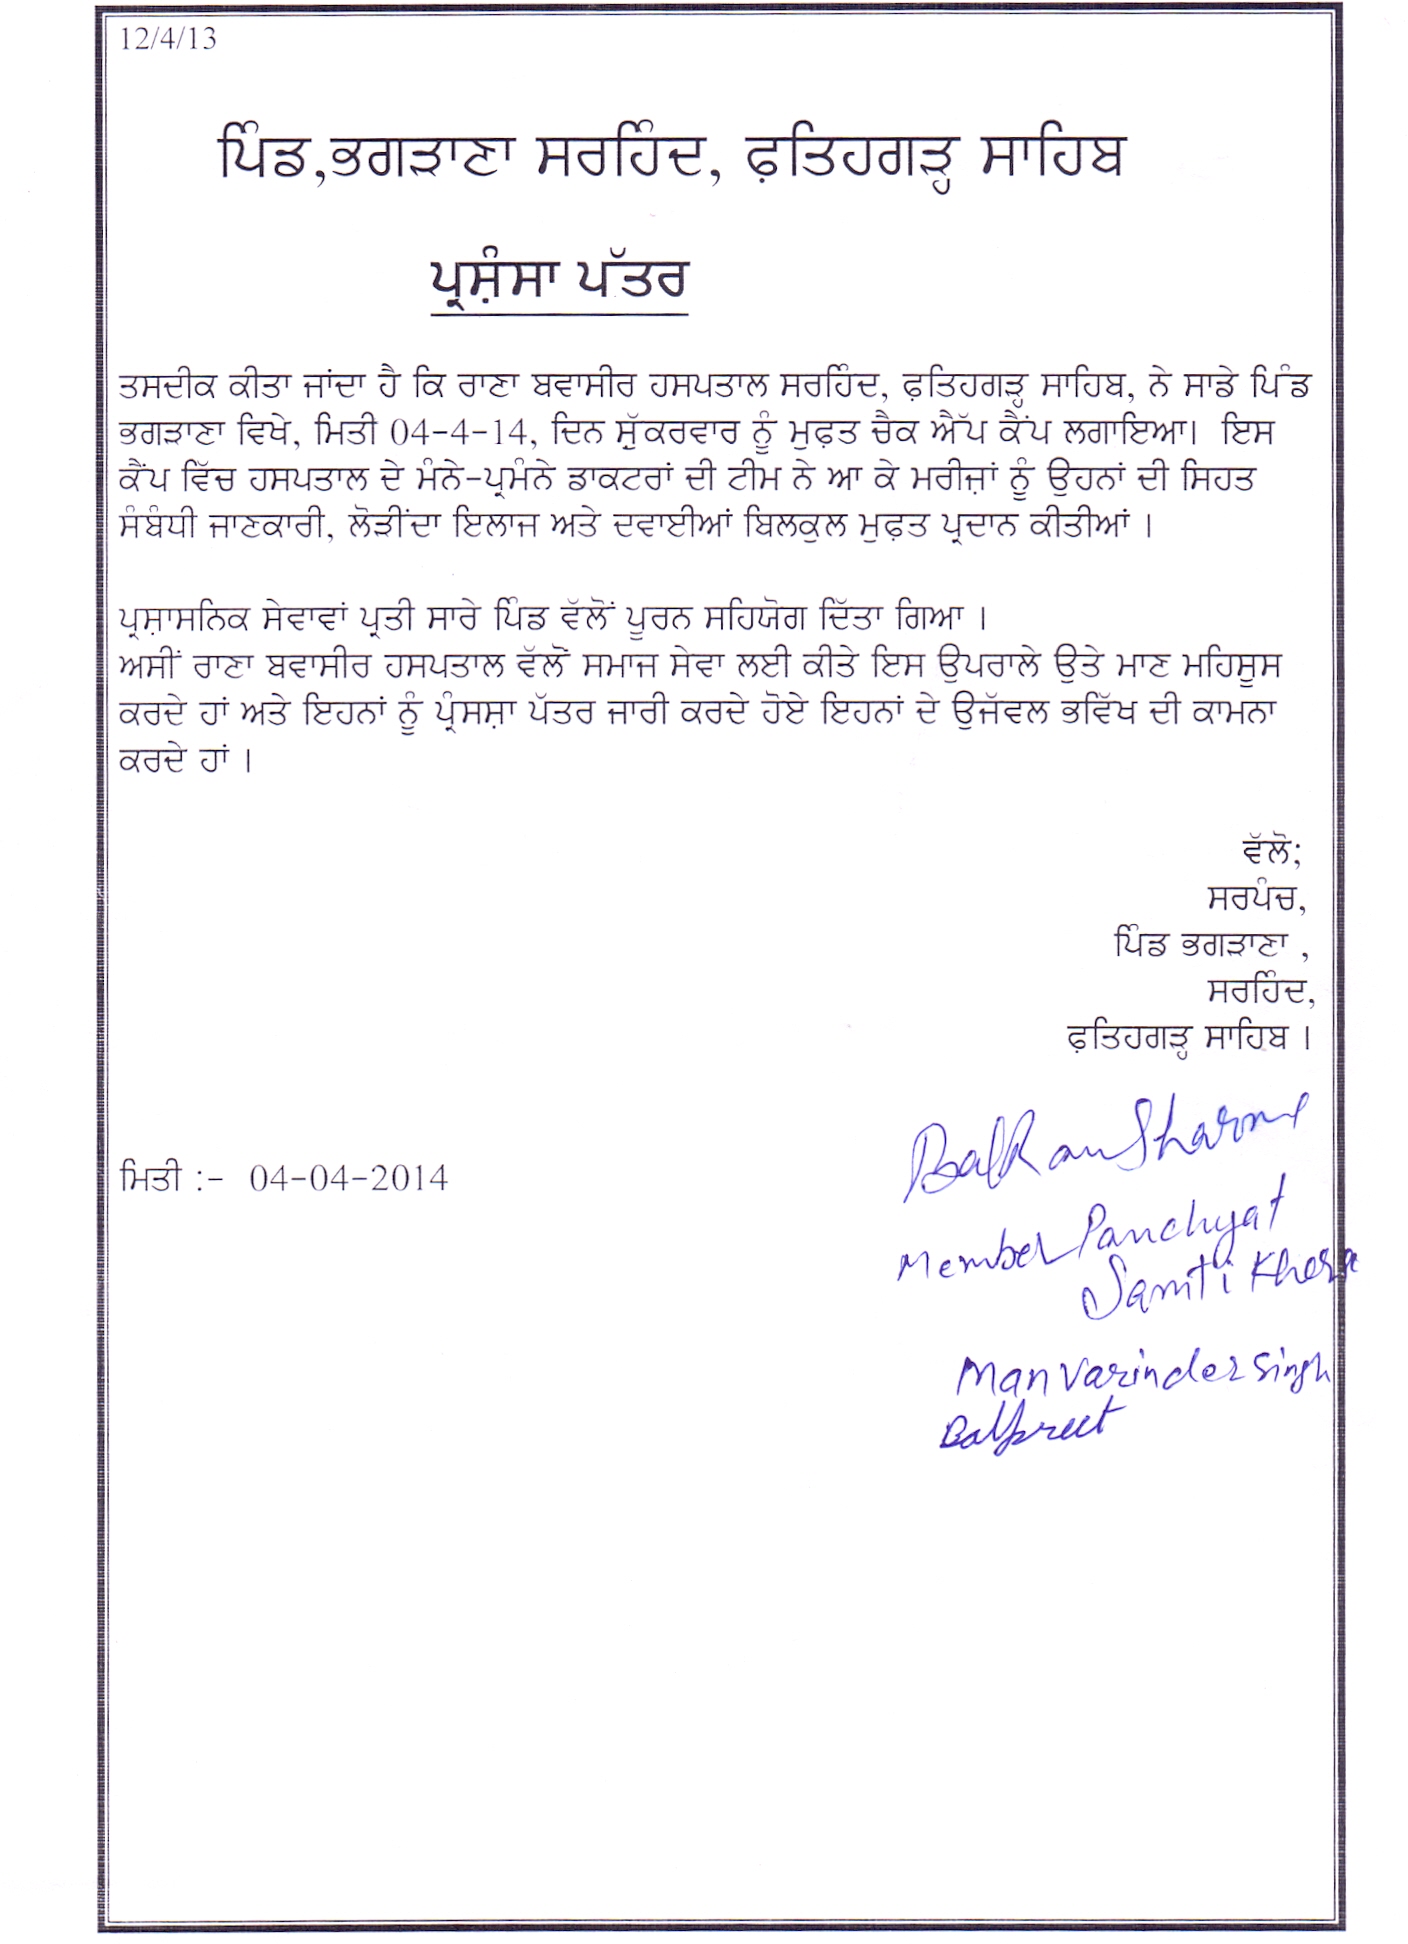 12/4/13
ਪਿੰਡ,ਭਗੜਾਣਾ ਸਰਹਿੰਦ, ਫ਼ਤਿਹਗੜ੍ਹ ਸਾਹਿਬ
ਪ੍ਰਸ਼ੰਸਾ ਪੱਤਰ
ਤਸਦੀਕ ਕੀਤਾ ਜਾਂਦਾ ਹੈ ਕਿ ਰਾਣਾ ਬਵਾਸੀਰ ਹਸਪਤਾਲ ਸਰਹਿੰਦ, ਫ਼ਤਿਹਗੜ੍ਹ ਸਾਹਿਬ, ਨੇ ਸਾਡੇ ਪਿੰਡ
ਭਗੜਾਣਾ ਵਿਖੇ, ਮਿਤੀ 04-4-14, ਦਿਨ ਸ਼ੁੱਕਰਵਾਰ ਨੂੰ ਮੁਫ਼ਤ ਚੈਕ ਐੱਪ ਕੈਂਪ ਲਗਾਇਆ। ਇਸ
ਕੈਂਪ ਵਿੱਚ ਹਸਪਤਾਲ ਦੇ ਮੰਨੇ-ਪ੍ਰਮੰਨੇ ਡਾਕਟਰਾਂ ਦੀ ਟੀਮ ਨੇ ਆ ਕੇ ਮਰੀਜ਼ਾਂ ਨੂੰ ਉਹਨਾਂ ਦੀ ਸਿਹਤ
ਸੰਬੰਧੀ ਜਾਣਕਾਰੀ, ਲੋੜੀਂਦਾ ਇਲਾਜ ਅਤੇ ਦਵਾਈਆਂ ਬਿਲਕੁਲ ਮੁਫ਼ਤ ਪ੍ਰਦਾਨ ਕੀਤੀਆਂ ।
ਪ੍ਰਸ਼ਾਸਨਿਕ ਸੇਵਾਵਾਂ ਪ੍ਰਤੀ ਸਾਰੇ ਪਿੰਡ ਵੱਲੋਂ ਪੂਰਨ ਸਹਿਯੋਗ ਦਿੱਤਾ ਗਿਆ ।
ਅਸੀਂ ਰਾਣਾ ਬਵਾਸੀਰ ਹਸਪਤਾਲ ਵੱਲੋਂ ਸਮਾਜ ਸੇਵਾ ਲਈ ਕੀਤੇ ਇਸ ਉਪਰਾਲੇ ਉਤੇ ਮਾਣ ਮਹਿਸੂਸ
ਕਰਦੇ ਹਾਂ ਅਤੇ ਇਹਨਾਂ ਨੂੰ ਪ੍ਰੰਸਸ਼ਾ ਪੱਤਰ ਜਾਰੀ ਕਰਦੇ ਹੋਏ ਇਹਨਾਂ ਦੇ ਉਜੱਵਲ ਭਵਿੱਖ ਦੀ ਕਾਮਨਾ
ਕਰਦੇ ਹਾਂ ।
ਵੱਲੋ;
ਸਰਪੰਚ,
ਪਿੰਡ ਭਗੜਾਣਾ ,
ਸਰਹਿੰਦ,
ਫ਼ਤਿਹਗੜ੍ਹ ਸਾਹਿਬ ।
ਮਿਤੀ :- 04-04-2014
BalRam Sharma
Member Panchyat
Samti Khera
Manvarinder Singh
Balpreet